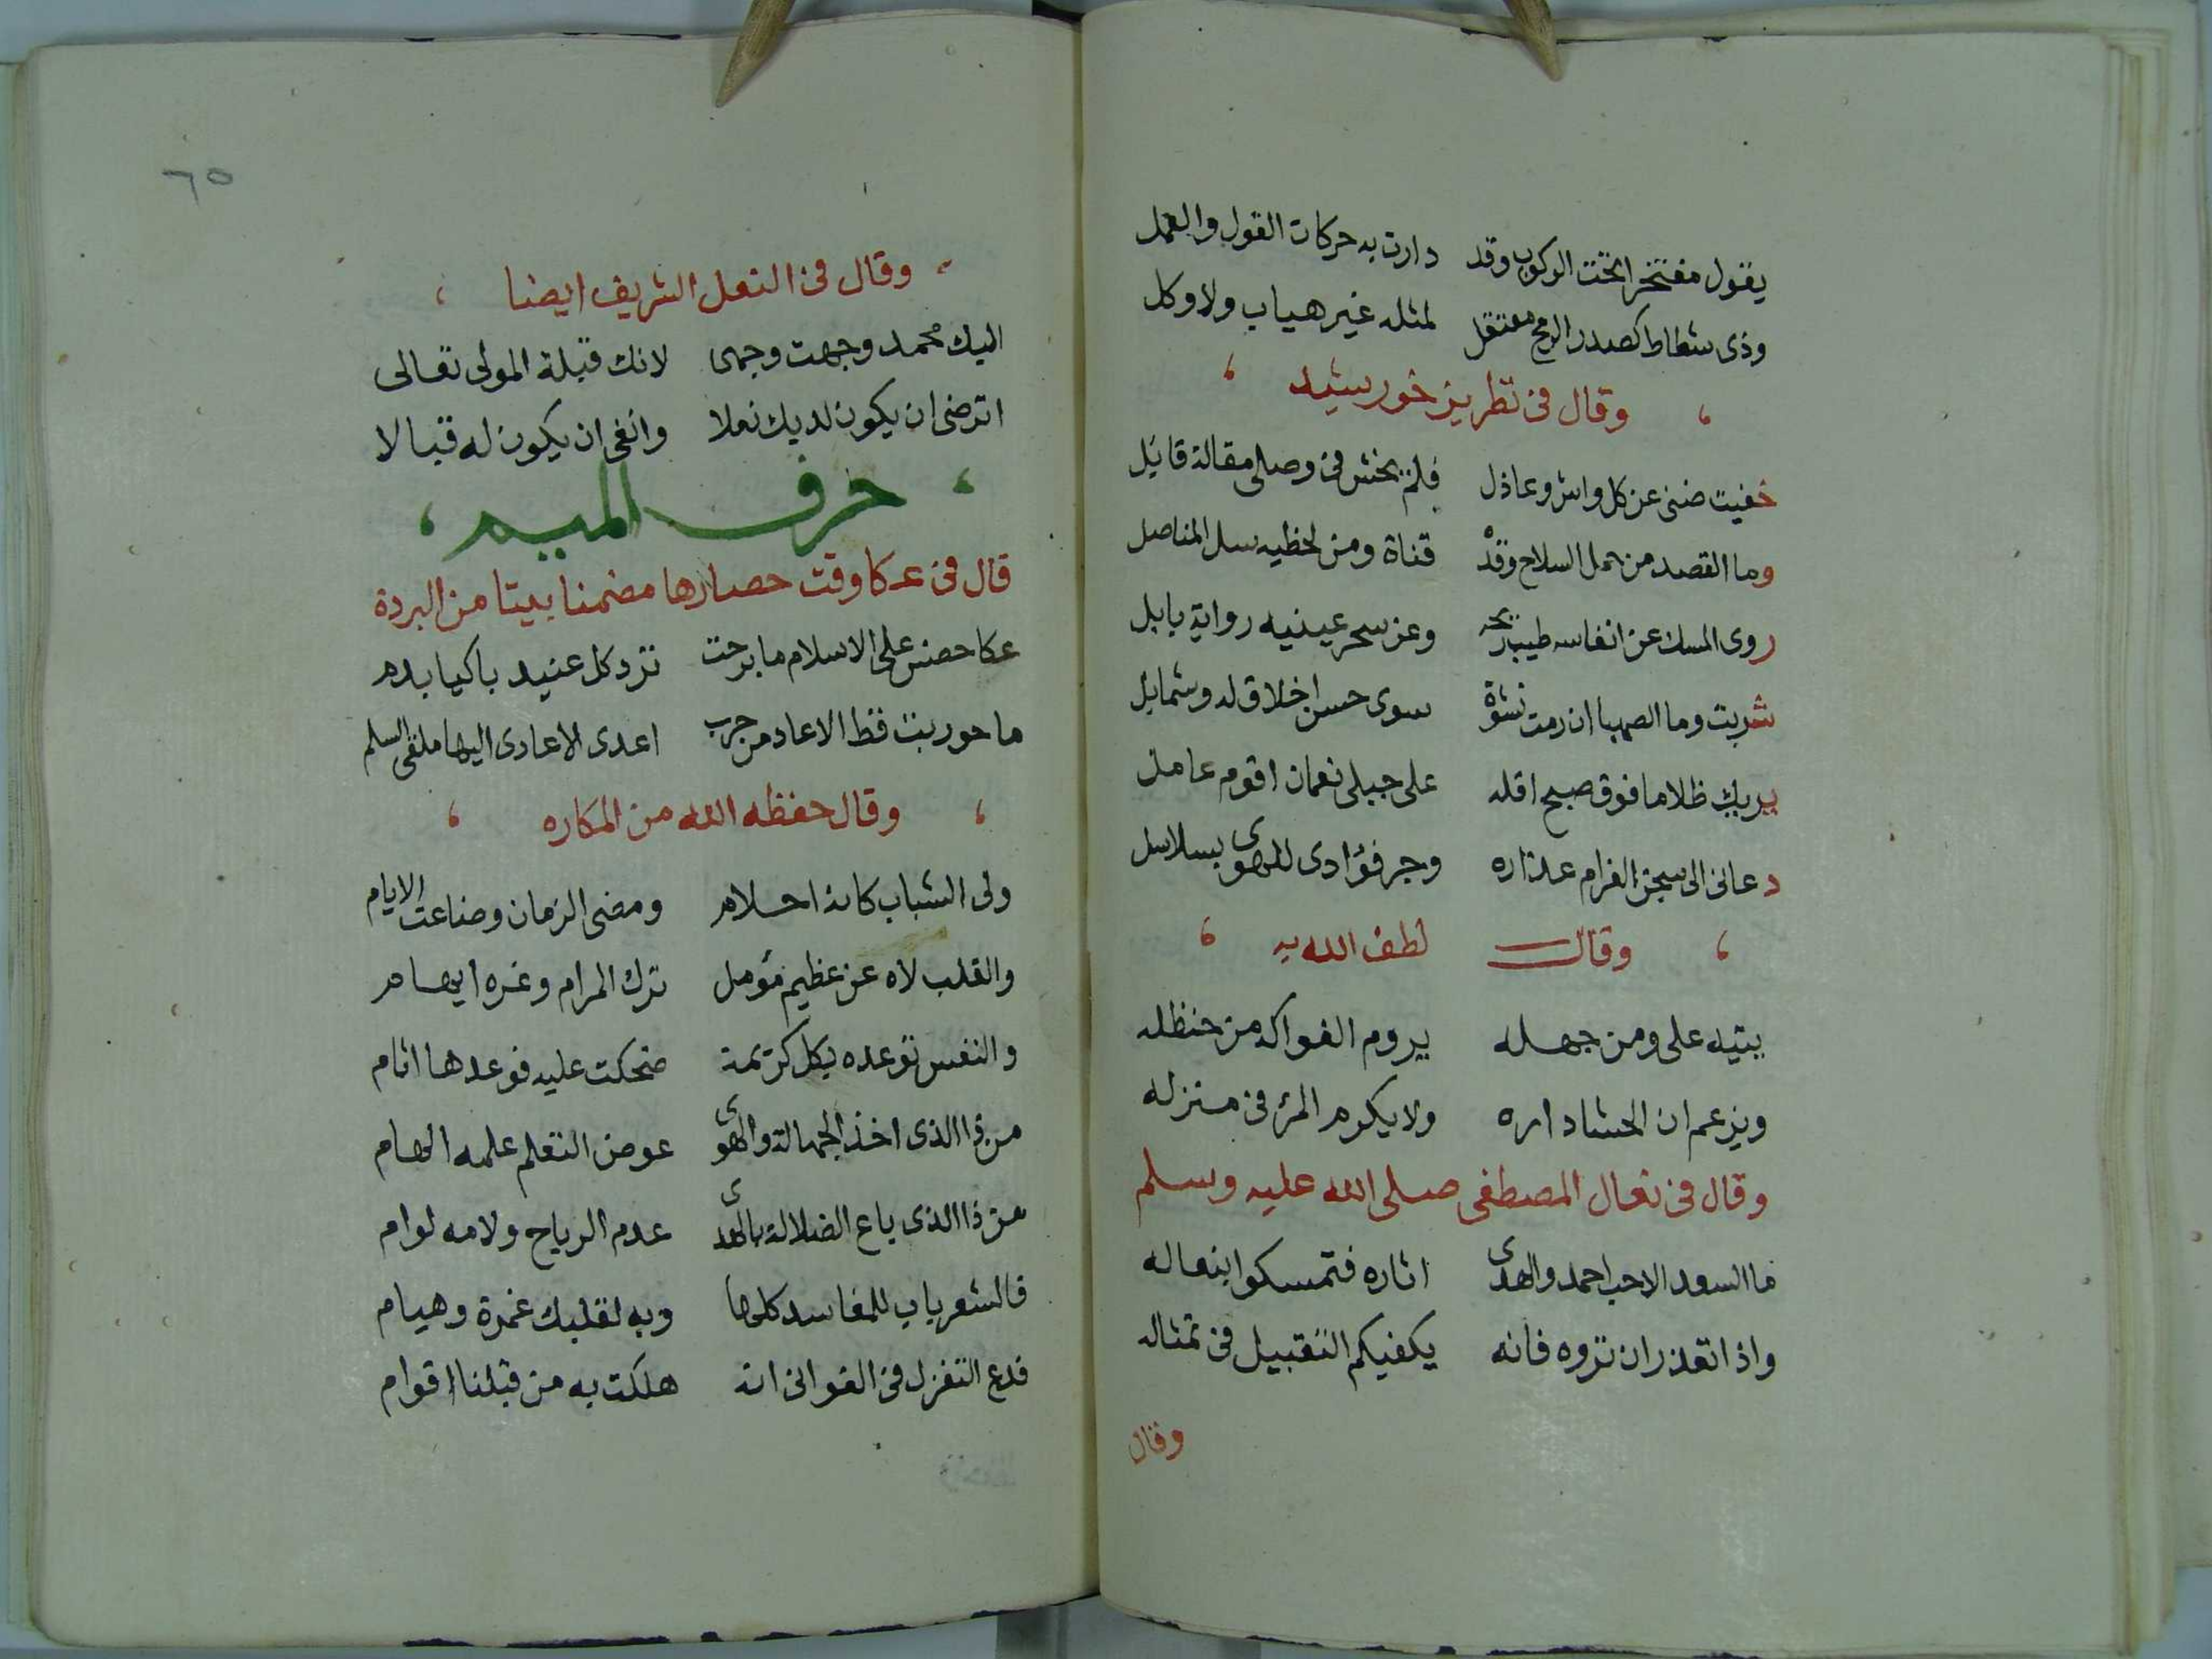 يقول مفتخرا تخت الركوب وقد دارت به حركات القول والعمل
وذى شطاط كصدر الرمح معتقل لمثله غير هياب ولا وكل
وقال فى تطريز خورشيد
خفيت ضنى عن كل واش وعاذل فلم يخش فى وصلى مقالة قائل
وما القصد من حمل السلاح وقده قناة ومن لحظيه سل المناصل
روى المسك عن انفاسه طيب ريحه وعن سحر عينيه رواية بابل
شربت وما الصهبا ان رمت نشوة سوى حسن اخلاق له وشمايل
يريك ظلاما فوق صبح اقله على جبلى نعمان اقوم عامل
دعانى الى سجن الغرام عذاره وجر فؤادى للهوى بسلاسل
وقال لطف الله به
يتيه على ومن جهله يروم الفواكه من حنظله
ويزعم ان الحشا داره ولا يكرم المرء فى منزله
وقال فى نعال المصطفى صلى الله عليه وسلم
ما السعد الا حب احمد والهدى اثاره فتمسكوا بنعاله
واذا تعذر ان تروه فانه يكفيكم التقبيل فى تمثاله
وقال
٦٥
وقال فى النعل الشريف ايضا
اليك محمد وجهت وجهى لانك قبلة المولى تعالى
اترضى ان يكون لديك نعلا وانفى ان يكون له قبالا
حرف الميم
قال فى عكا وقت حصارها مضمنا بيتا من البردة
عكا حصنس على الاسلام ما برحت ترد كل عنيد باكيا بدم
ما حوربت قط الا عاد من حرب اعدى الاعادى اليها ملقى السلم
وقال حفظه الله من المكاره
ولى الشباب كانه احلام ومضى الزمان وضاعت الايام
والقلب لاه عن عظيم مؤمل ترك المرام وغره ايهام
والنفس توعده بكل كريمة ضحكت عليه فوعدها اثام
من ذا الذى اخذ الجهالة والهوى عوض التعلم علمه الهام
من ذا الذى باع الضلالة بالهدى عدم الرباح ولامه لوام
فالشعر باب للمفاسد كلها وبه لقلبك غمرة وهيام
فدع التغزل فى الغوانى انه هلكت به من قبلنا اقوام